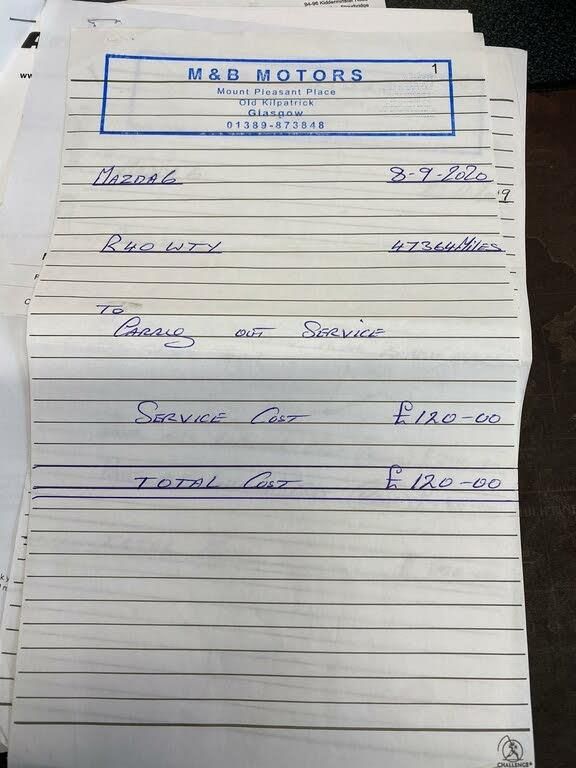 94-96 Kidderminster Road
www
M&B MOTORS 1
Mount Pleasant Place
Old Kilpatrick
Glasgow
01389-873848
MAZDA 6 8-9-2020
R40 WTY 47364 Miles
TO
CARRY OUT SERVICE
SERVICE COST £120-00
TOTAL COST £120-00
CHALLENGE